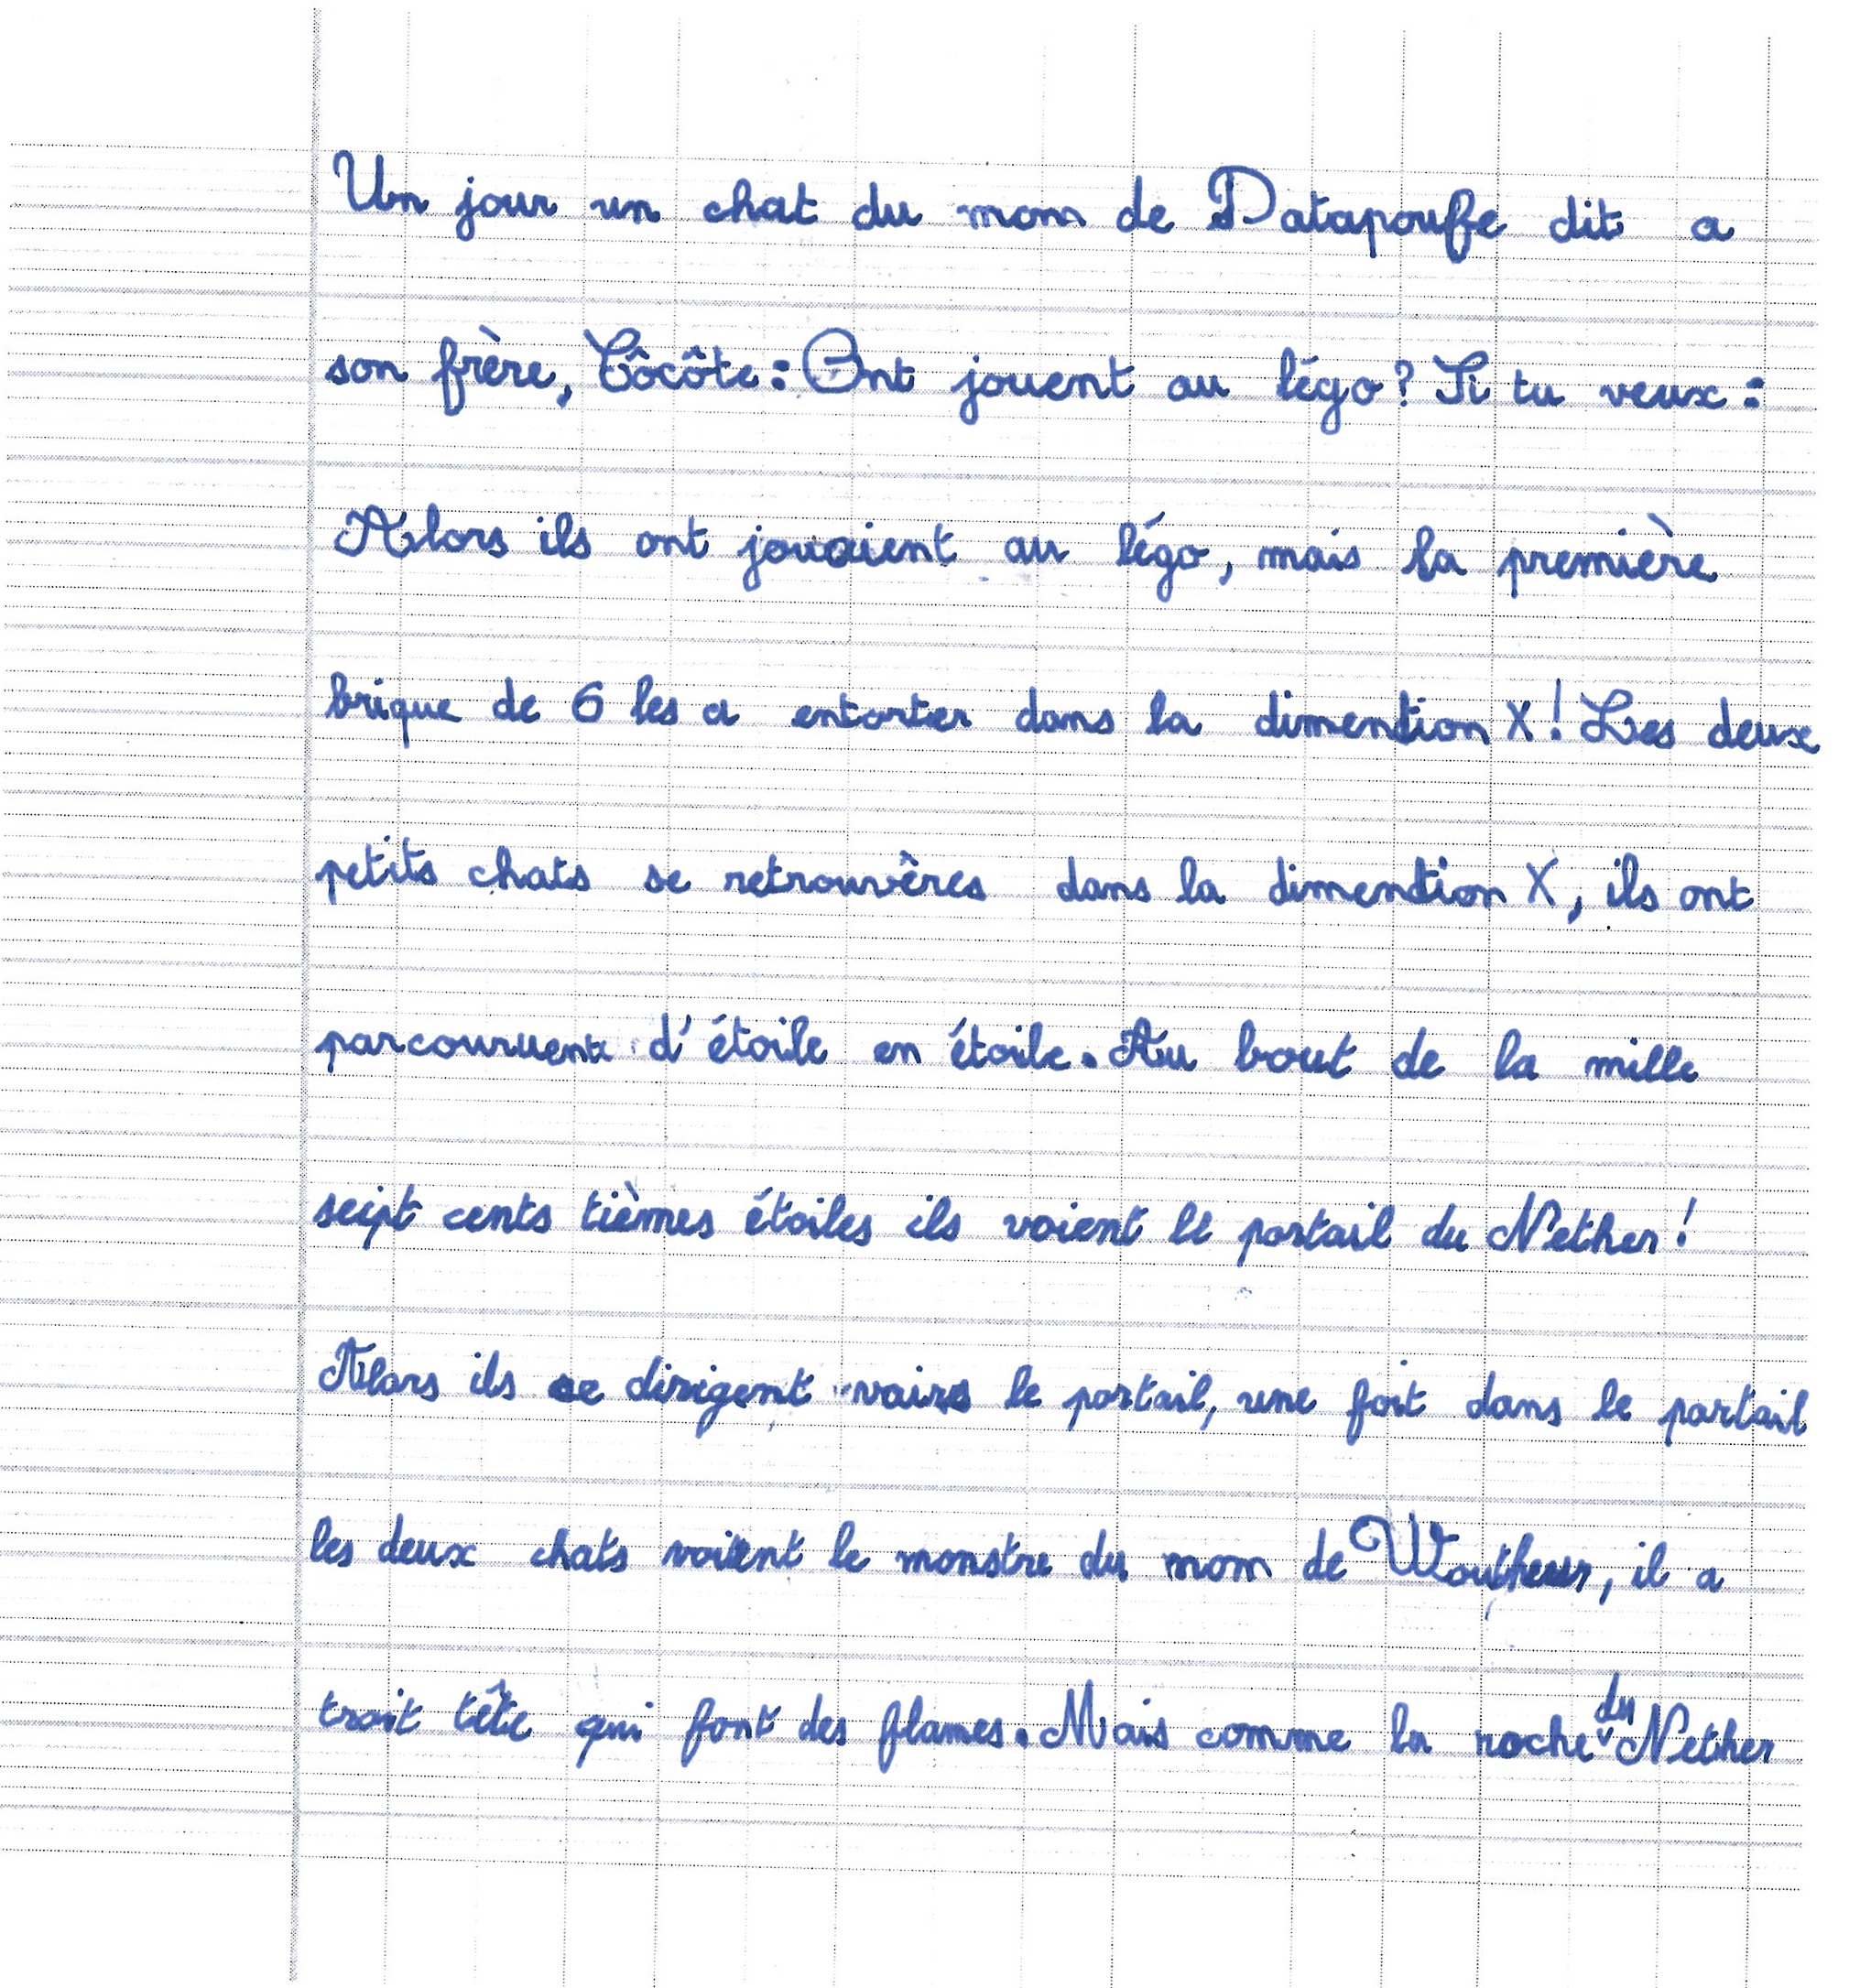 Un jour un chat du mom de Patapouffe dit a
son frère, Côcôte : Ont jouent au légo ? Si tu veux :
Alors ils ont jouaient au légo, mais la première
brique de 6 les a entortier dans la dimention X ! Les deux
petits chats se retrouvères dans la dimention X, ils ont
parcouruent d'étoile en étoile. Au bout de la mille
sept cents tièmes étoiles ils voient le portail du Nether !
Alors ils se dirigent vairs le portail, une foit dans le portail
les deux chats voient le monstre du mom de , il a
troit tête qui font des flames. Mais comme la roche du Nether